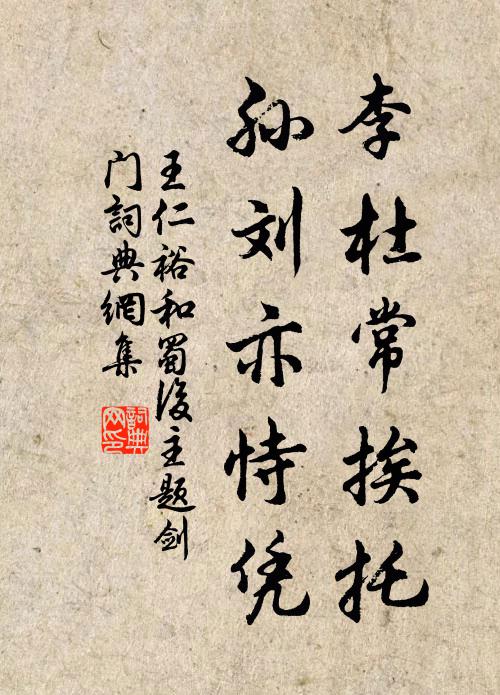 李杜常挨托
孙刘亦恃凭
王仁裕和蜀後主题剑
门詞典網集
詞典
网印